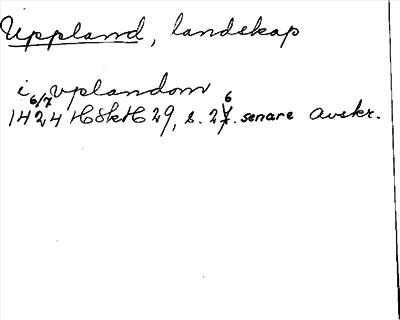 Uppland, landskap
i Uplandom
6/7 1424 HSkH 29, s. 26. senare avskr.